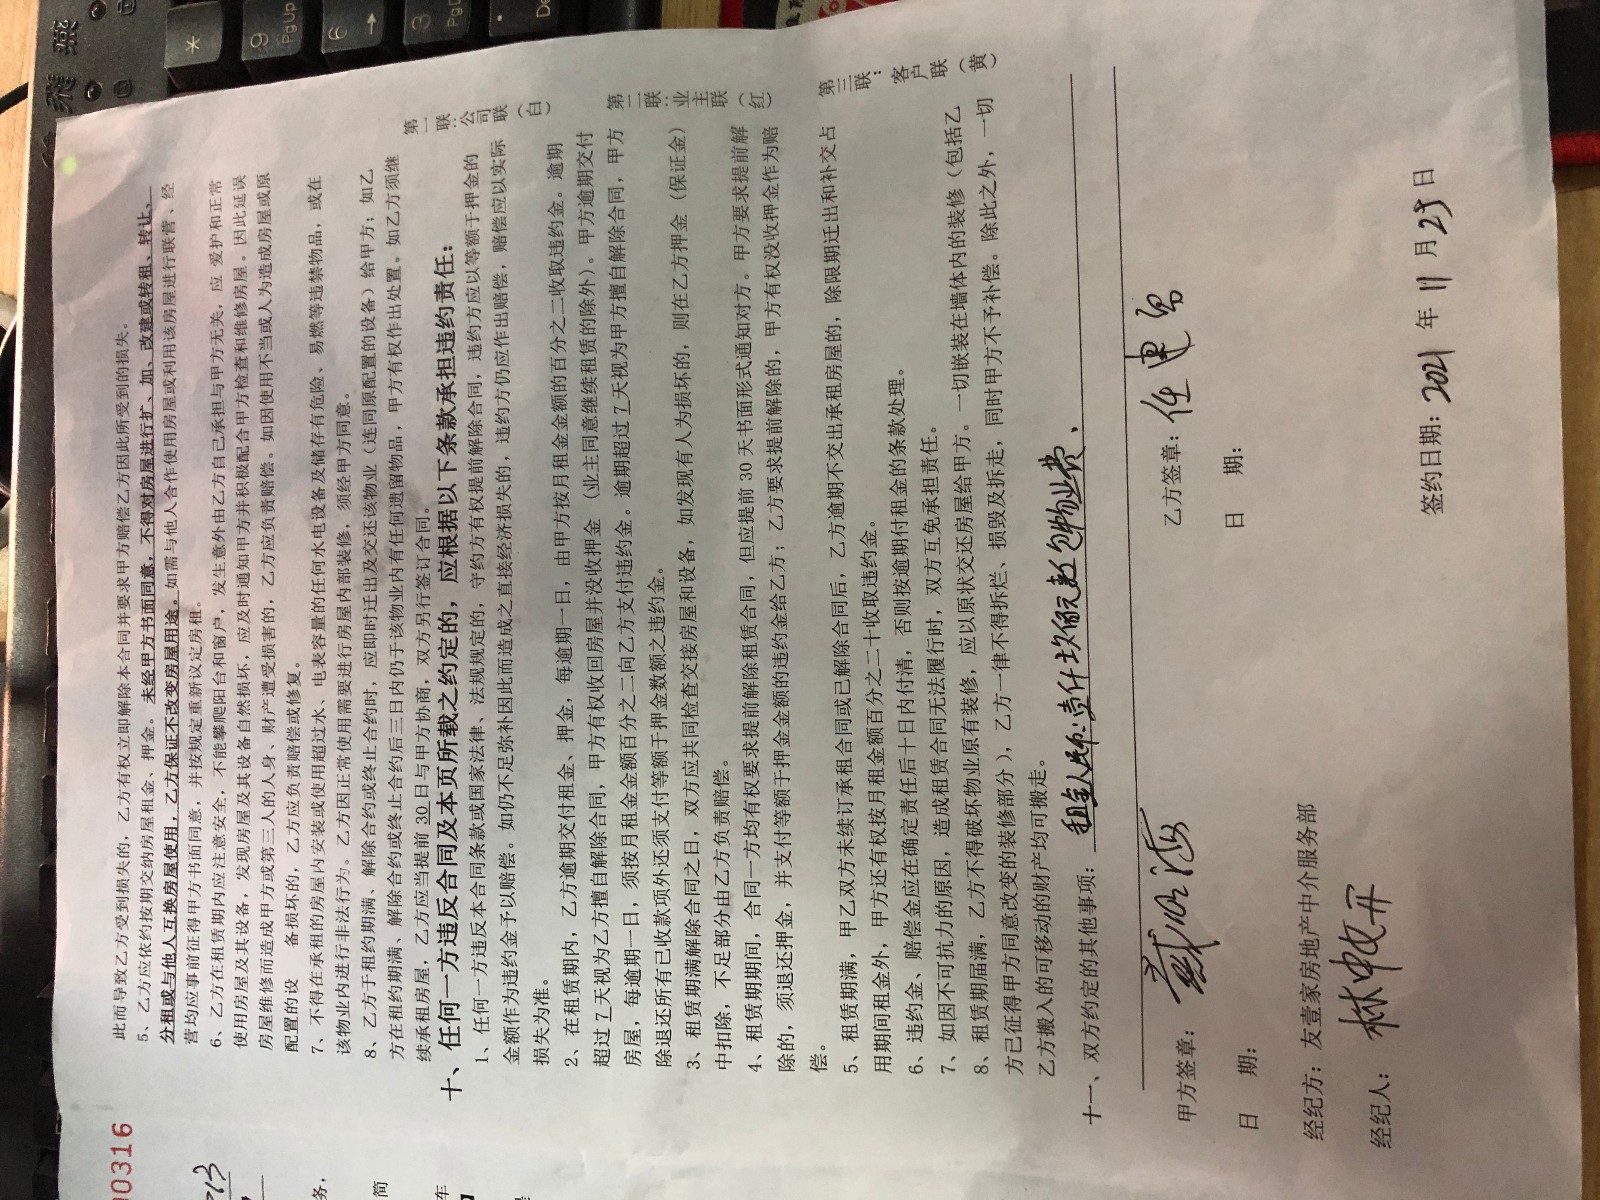 00316
此而导致乙方受到损失的，乙方有权立即解除本合同并要求甲方赔偿乙方因此所受到的损失。
5、乙方应依约按期交纳房屋租金、押金。未经甲方书面同意，不得对房屋进行扩、加、改建或转租、转让、
分租或与他人互换房屋使用，乙方保证不改变房屋用途。如需与他人合作使用房屋或利用该房屋进行联营、经
营均应事前征得甲方书面同意，并按规定重新议定房租。
6、乙方在租赁期内应注意安全，不能攀爬阳台和窗户，发生意外由乙方自己承担与甲方无关，应 爱护和正常
使用房屋及其设备，发现房屋及其设备自然损坏，应及时通知甲方并积极配合甲方检查和维修房屋。因此延误
房屋维修而造成甲方或第三人的人身、财产遭受损害的，乙方应负责赔偿。如因使用不当或人为造成房屋或原
配置的设 备损坏的，乙方应负责赔偿或修复。
7、不得在承租的房屋内安装或使用超过水、电表容量的任何水电设备及储存有危险、易燃等违禁物品，或在
该物业内进行非法行为。乙方因正常使用需要进行房屋内部装修，须经甲方同意。
8、乙方于租约期满、解除合约或终止合约时，应即时迁出及交还该物业（连同原配置的设备）给甲方；如乙
方在租约期满、解除合约或终止合约后三日内仍于该物业内有任何遗留物品，甲方有权作出处置。如乙方须继
续承租房屋，乙方应当提前 30 日与甲方协商，双方另行签订合同。
十、任何一方违反合同及本页所载之约定的，应根据以下条款承担违约责任：
1、任何一方违反本合同条款或国家法律、法规规定的，守约方有权提前解除合同，违约方应以等额于押金的
金额作为违约金予以赔偿。如仍不足弥补因此而造成之直接经济损失的，违约方仍应作出赔偿，赔偿应以实际
损失为准。
2、在租赁期内，乙方逾期交付租金、押金，每逾期一日，由甲方按月租金金额的百分之二收取违约金。逾期
超过 7 天视为乙方擅自解除合同，甲方有权收回房屋并没收押金 （业主同意继续租赁的除外）。甲方逾期交付
房屋，每逾期一日，须按月租金金额百分之二向乙方支付违约金。逾期超过 7 天视为甲方擅自解除合同，甲方
除退还所有已收款项外还须支付等额于押金数额之违约金。
3、租赁期满解除合同之日，双方应共同检查交接房屋和设备，如发现有人为损坏的，则在乙方押金（保证金）
中扣除，不足部分由乙方负责赔偿。
4、租赁期期间，合同一方均有权要求提前解除租赁合同，但应提前 30 天书面形式通知对方。甲方要求提前解
除的，须退还押金，并支付等额于押金金额的违约金给乙方；乙方要求提前解除的，甲方有权没收押金作为赔
偿。
5、租赁期满，甲乙双方未续订承租合同或已解除合同后，乙方逾期不交出承租房屋的，除限期迁出和补交占
用期间租金外，甲方还有权按月租金额百分之二十收取违约金。
6、违约金、赔偿金应在确定责任后十日内付清，否则按逾期付租金的条款处理。
7、如因不可抗力的原因，造成租赁合同无法履行时，双方互免承担责任。
8、租赁期届满，乙方不得破坏物业原有装修，应以原状交还房屋给甲方。一切嵌装在墙体内的装修（包括乙
方已征得甲方同意改变的装修部分），乙方一律不得拆烂、损毁及拆走，同时甲方不予补偿。除此之外，一切
乙方搬入的可移动的财产均可搬走。
第一联：公司联（白）
第二联：业主联（红）
第三联：客户联（黄）
十一、双方约定的其他事项：
包物业费、
甲方签章：
乙方签章：任建
日 期：
日 期：
经纪方：友壹家房地产中介服务部
经纪人：林
签约日期：2021 年 11 月 25 日
务，
简
车